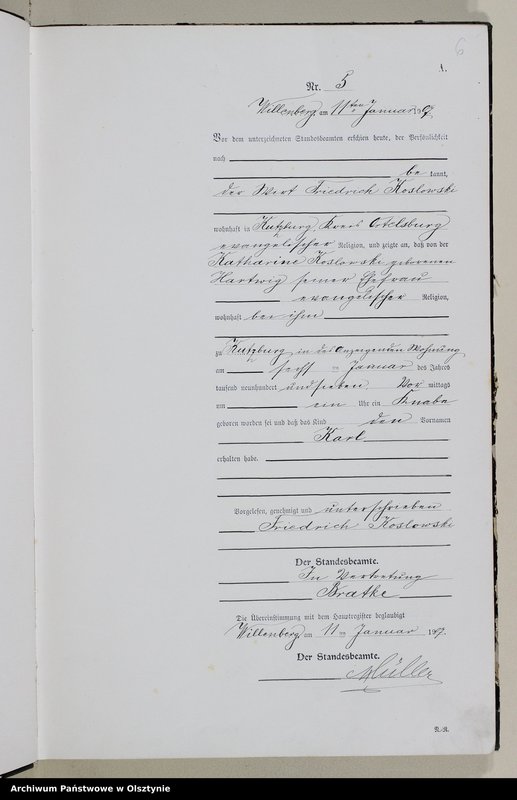 6
A.
Nr. 5
Willenberg, am 11ten Januar 1907.
Vor dem unterzeichneten Standesbeamten erschien heute, der Persönlichkeit
nach
be kannt,
der Wirt Friedrich Koslowski
wohnhaft in Kutzburg, Kreis Ortelsburg
evangelischer Religion, und zeigte an, daß von der
Katharine Koslowski geborenen
Hartwig seiner Ehefrau
evangelischer Religion,
wohnhaft bei ihm
zu Kutzburg, in des Anzeigenden Wohnung
am sechs ten Januar des Jahres
tausend neunhundert und sieben Vor mittags
um ein Uhr ein Knabe
geboren worden sei und daß das Kind den Vornamen
Karl
erhalten habe.
Vorgelesen, genehmigt und unterschrieben
Friedrich Koslowski
Der Standesbeamte.
In Vertretung
Bratke
Die Übereinstimmung mit dem Hauptregister beglaubigt
Willenberg, am 11 ten Januar 1907.
Der Standesbeamte.
Müller
N.-R.
Archiwum Państwowe w Olsztynie